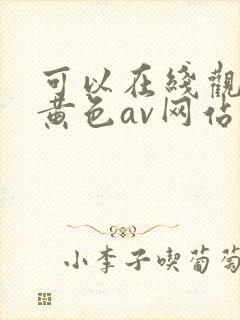 可以在綫觀
黄色av网估
小李子喫葡萄